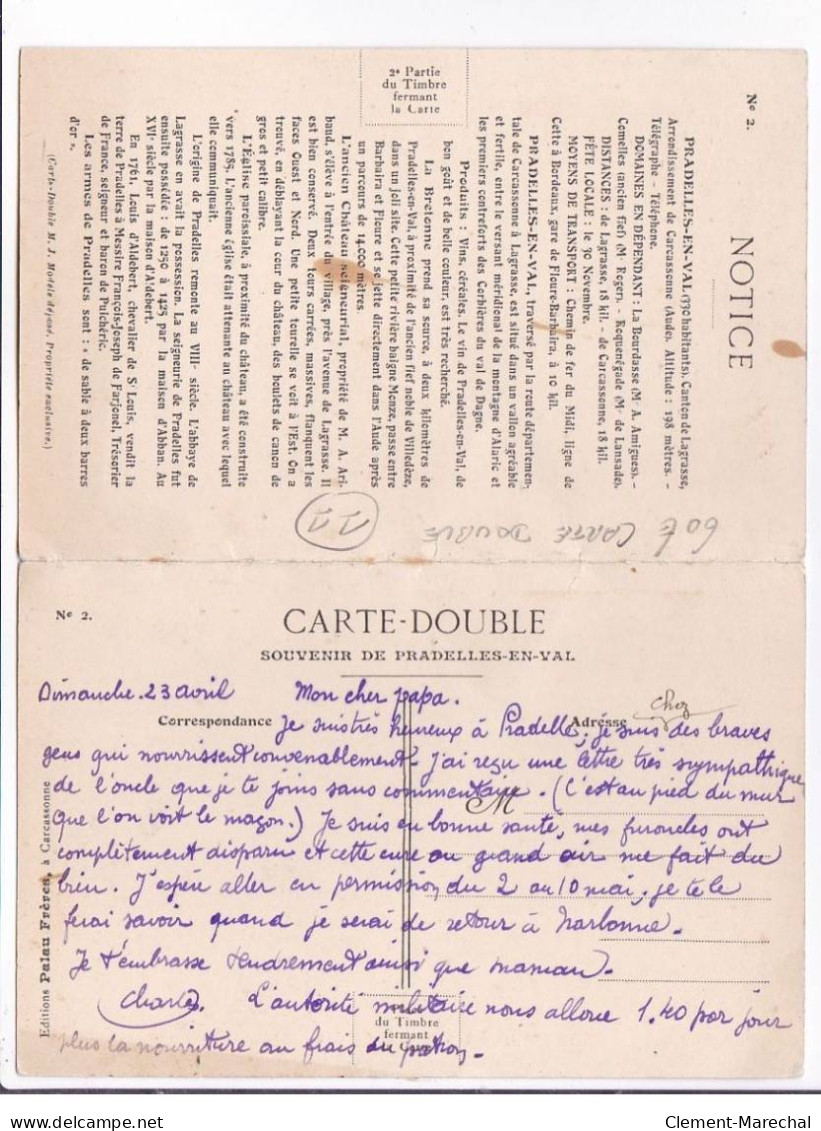 No 2.
NOTICE
PRADELLES-EN-VAL (330 habitants). Canton de Lagrasse,
Arrondissement de Carcassonne (Aude). Altitude : 198 mètres. —
Télégraphe - Téléphone.
DOMAINES EN DÉPENDANT : La Bourdasse (M. A. Amigues). —
Comelles (ancien fief) (M. Roger). — Roquenégade (Mis de Lansade).
DISTANCES : de Lagrasse, 18 kil. — de Carcassonne, 18 kil.
FÊTE LOCALE : le 30 Novembre.
MOYENS DE TRANSPORT : Chemin de fer du Midi, ligne de
Cette à Bordeaux, gare de Floure-Barbaira, à 10 kil.
PRADELLES-EN-VAL, traversé par la route départemen-
tale de Carcassonne à Lagrasse, est situé dans un vallon agréable
et fertile, entre le versant méridional de la montagne d'Alaric et
les premiers contreforts des Corbières du val de Dagne.
Produits : Vins, céréales. Le vin de Pradelles-en-Val, de
bon goût et de belle couleur, est très recherché.
La Bretonne prend sa source, à deux kilomètres de
Pradelles-en-Val, à proximité de l'ancien fief noble de Villedèze,
dans un joli site. Cette petite rivière baigne Monze, passe entre
Barbaira et Floure et se jette directement dans l'Aude après
un parcours de 14.000 mètres.
L'ancien Château seigneurial, propriété de M. A. Ari-
baud, s'élève à l'entrée du village, près l'avenue de Lagrasse. Il
est bien conservé. Deux tours carrées, massives, flanquent les
faces Ouest et Nord. Une petite tourelle se voit à l'Est. On a
trouvé, en déblayant la cour du château, des boulets de canon de
gros et petit calibre.
L'Eglise paroissiale, à proximité du château, a été construite
vers 1785. L'ancienne église était attenante au château avec lequel
elle communiquait.
L'origine de Pradelles remonte au VIIIe siècle. L'abbaye de
Lagrasse en avait la possession. La seigneurie de Pradelles fut
ensuite possédée : de 1250 à 1425 par la maison d'Abban. Au
XVIe siècle par la maison d'Aldebert.
En 1761, Louis d'Aldebert, chevalier de St Louis, vendit la
terre de Pradelles à Messire François-Joseph de Farjonel, Trésorier
de France, seigneur et baron de Pulchéric.
Les armes de Pradelles sont : « de sable à deux barres
d'or ».
(Carte-Double M. J. Modèle déposé. Propriété exclusive.)
2e Partie
du Timbre
fermant
la Carte
60 € CARTE DOUBLE
11
No 2.
CARTE-DOUBLE
SOUVENIR DE PRADELLES-EN-VAL
Dimanche 23 avril Mon cher papa.
Correspondance Adresse
chez
Je suis très heureux à Pradelle, je suis des braves
gens qui nourrissent convenablement J'ai reçu une lettre très sympathique
de l'oncle que je te joins sans commentaire. (C'est au pied du mur
M
que l'on voit le maçon.) Je suis en bonne santé, mes furoncles ont
complètement disparu et cette cure au grand air me fait du
bien. J'espère aller en permission du 2 au 10 mai, je te le
ferai savoir quand je serai de retour à Narbonne.
Je t'embrasse tendrement ainsi que maman.
Charles. L'autorité militaire nous alloue 1.40 par jour
plus la nourriture au frais du patron.
du Timbre
fermant
Editions Palau Frères, à Carcassonne
Clement-Marechal